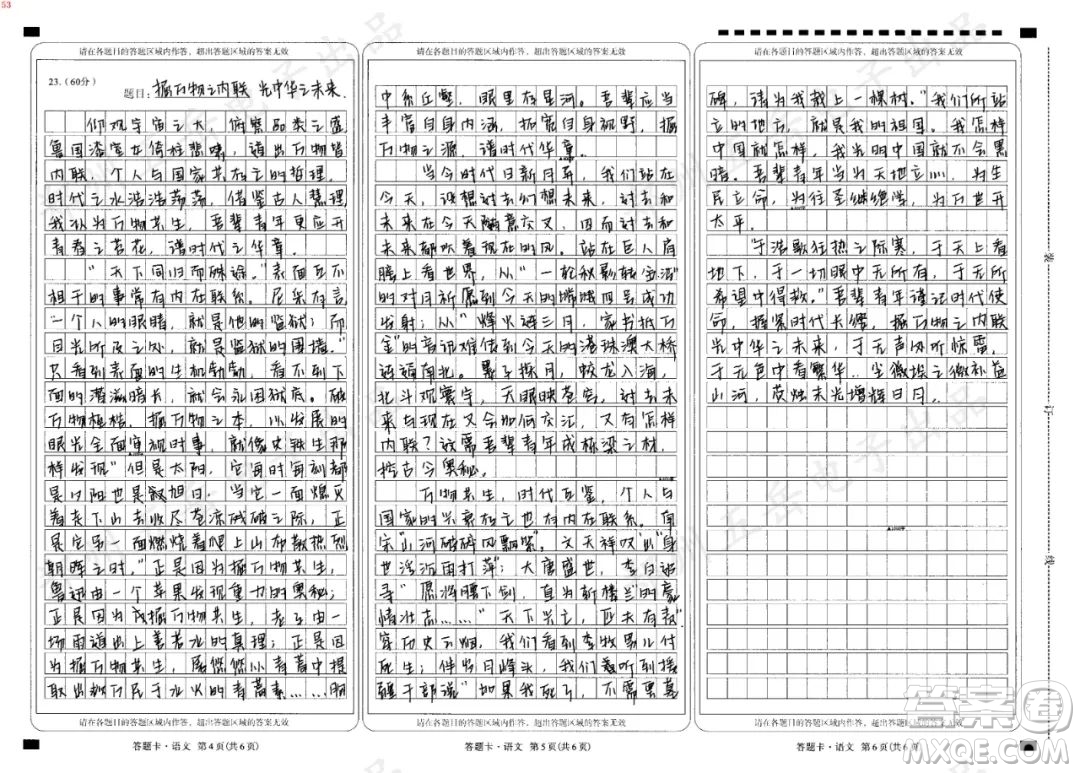 53
请在各题目的答题区域内作答，超出答题区域的答案无效
23.（60分）
题目：握万物之内联 光中华之未来
仰观宇宙之大，俯察品类之盛
鲁国漆室女倚柱悲啸，道出万物皆
内联，个人与国家共在之的哲理，
时代之水浩浩荡荡，借鉴古人慧理
我以为万物共生，吾辈青年更应开
青春之苔花，谱时代之华章。
“天下同归而殊途。”表面互不
相干的事常有内在联系。尼采有言
“一个人的眼睛，就是他的监狱；而
目光所及之处，就是监狱的围墙。”
只看到表面的生机勃勃，看不到下
面的潜滋暗长，就会永困狱底。破
万物桎梏，握万物之本，以发展的
眼光全面审视时事，就像史铁生那
样发现“但是太阳，它每时每刻都
是夕阳也是旭日。当它一面熄灭
着走下山去收尽苍凉残破之际，正
是它另一面燃烧着爬上山布散热烈
朝晖之时。”正是因为握万物共生，
鲁迅由一个苹果发现重力的奥秘；
正是因为握万物共生，老子由一
场雨道出上善若水的真理；正是因
为握万物共生，屠悠悠从青蒿中提
取出救万民于水火的青蒿素……胸
请在各题目的答题区域内作答，超出答题区域的答案无效
答题卡·语文 第4页(共6页)
请在各题目的答题区域内作答，超出答题区域的答案无效
中有丘壑，眼里存星河。吾辈应当
丰富自身内涵，拓宽自身视野，握
万物之源，谱时代华章。
当今时代日新月异，我们站在
今天，设想过去们想未来，过去和
未来在今天融意交叉，因而过去和
未来都吹着现在的风。站在巨人肩
膀上看世界，从“一轮秋影转金波”
的对月祈愿到今天的嫦娥四号成功
发射；从“烽火连三月，家书抵万
金”的音讯难传到今天的港珠澳大桥
连通南北。墨子探月，蛟龙入海，
北斗观寰宇，天眼映苍穹，过去未
来与现在又会如何交汇，又有怎样
内联？这需吾辈青年成栋梁之材，
挖古今奥秘。
万物共生，时代互鉴，个人与
国家的兴衰存亡也在内在联系。南
宋“山河破碎风飘絮”文天祥叹“身
世浮沉雨打萍”；大唐盛世，李白追
寻“愿将腰下剑，直为斩楼兰”的豪
情壮志……“天下兴亡，匹夫有责”
穿历史云烟，我们看到李牧男儿付
死生；伴岁月峰头，我们
“如果我死了，不需要墓
请在各题目的答题区域内作答，超出答题区域的答案无效
答题卡·语文 第5页(共6页)
请在各题目的答题区域内作答，超出答题区域的答案无效
碑，请为我栽上一棵树。”我们所站
立的地方，就是我的祖国。我怎样
中国就怎样，我光明中国就不会黑
暗。吾辈青年当为天地立心，为生
民立命，为往圣继绝学，为万世开
太平。
“于浩歌狂热之际寒，于天上看
地下，于一切眼中无所有，于无所
希望中得救。”吾辈青年谨记时代使
命，握紧时代长缨，握万物之内联
光中华之未来，于无声处听惊雷，
于无色中看繁华，尘微垠之微补益
山河，荧烛末光增辉日月。
请在各题目的答题区域内作答，超出答题区域的答案无效
答题卡·语文 第6页(共6页)
装
订
线
答案圈
MXQE.COM